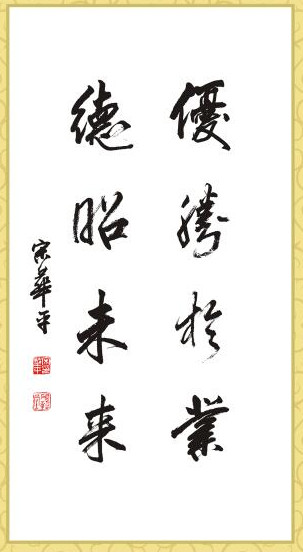 優勝於業
德昭未来
宗華平